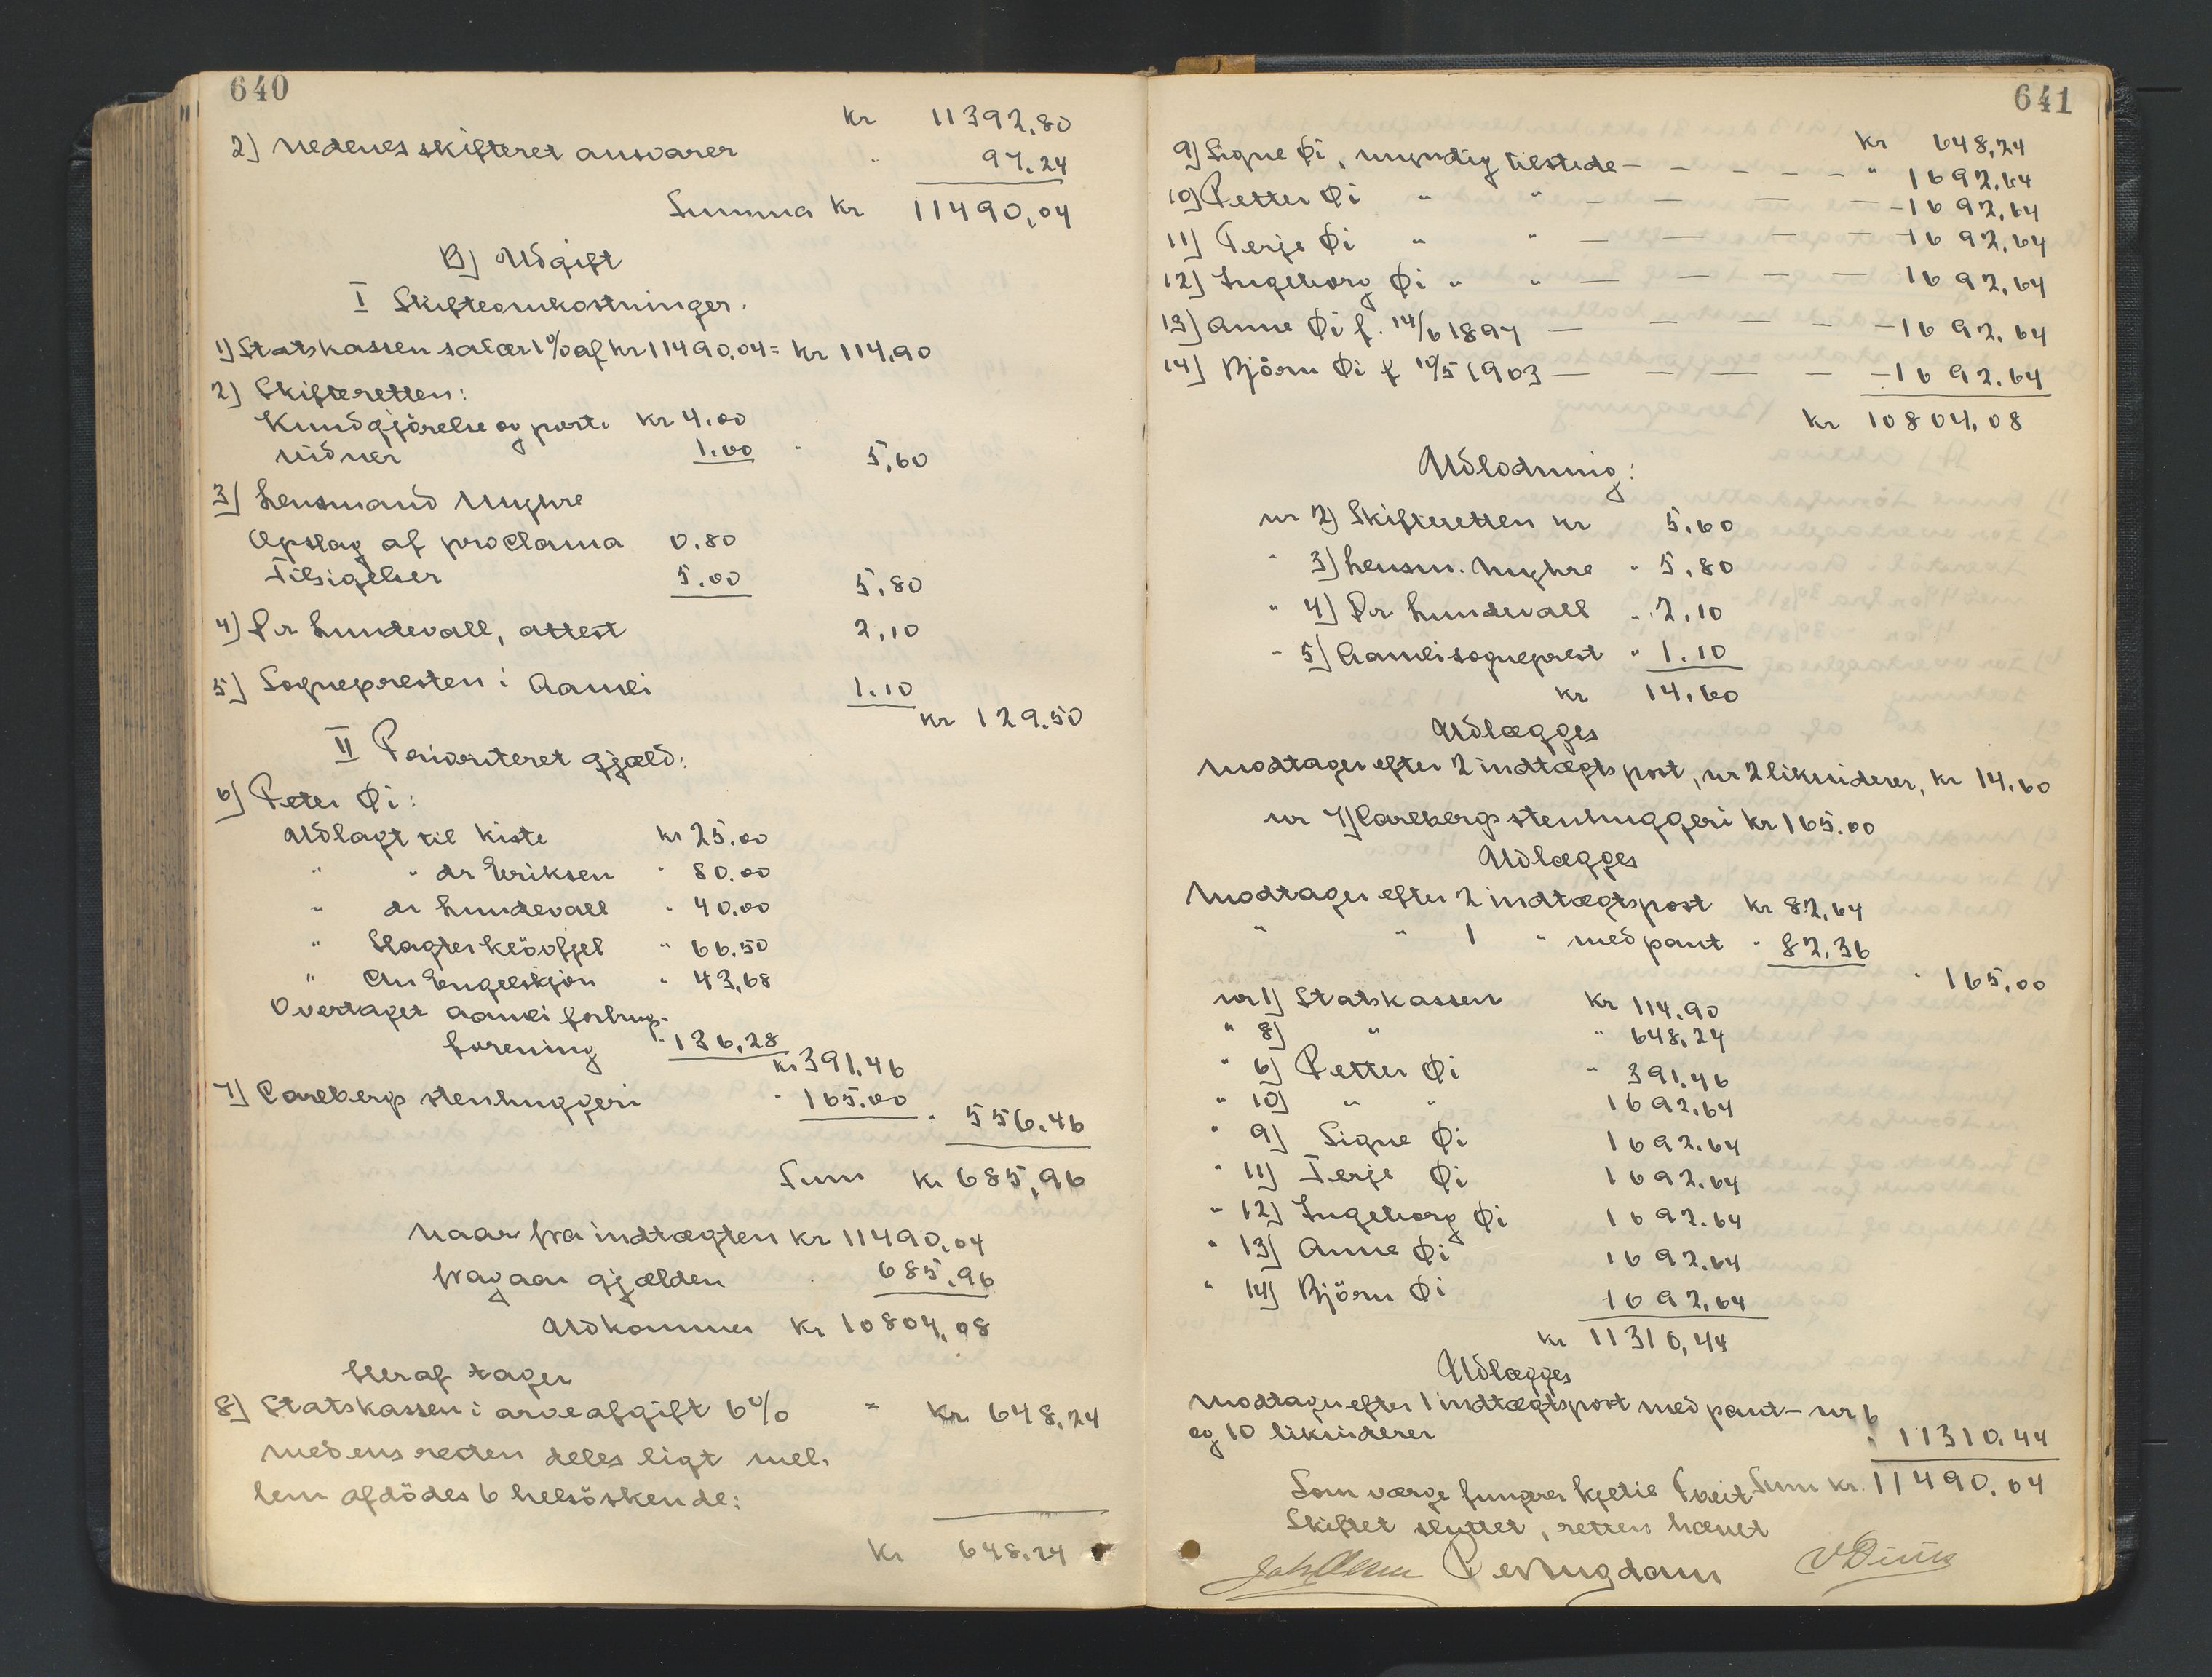 640
kr 11392,80
2) Nedenes skifteret ansvarer " 97,24
Summa kr 11490,04
B) Udgift
I Skifteomkostninger.
1) Statskassen salær 1% af kr 11490,04 = kr 114,90
2) Skifteretten:
Kundgjörelse og porto kr 4.00
vidner 1.00 " 5,60
3) Lensmand Myhre
Opslag af proclama 0.80
Tilsigelser 5.00 5,80
4) Dr Lundevall, attest 2,10
5) Sognepresten i Aamli 1.10
kr 129.50
II Prioriteret gjæld:
6) Peter Øi:
Udlagt til kiste kr 25.00
" " dr Eriksen " 80.00
" dr Lundevall " 40.00
" Slagter Klövfjel " 66.50
" An Engelskjön " 43,68
Overtaget Aamli forbrugs-
forening " 136,28
kr 391,46
7) Carlbergs stenhuggeri " 165.00 " 556.46
Sum kr 685,96
Naar fra indtægten kr 11490,04
fragaar gjælden " 685,96
Udkommer kr 10804,08
Heraf tager
8) Statskassen i arveafgift 6% = kr 648,24
medens resten deles ligt mel-
lem afdödes 6 helsöskende:
kr 648.24
641
kr 648,24
9) Signe Øi, myndig tilstede — — — — — " 1692,64
10) Petter Øi " " — — — — 1692,64
11) Terje Øi " " — — — — 1692,64
12) Ingeborg Øi " " — — — — 1692,64
13) Anne Øi f. 14/6 1897 — — — — 1692,64
14) Björn Øi f 10/5 1903 — — — — 1692.64
kr 10804,08
Udlodning:
nr 2) Skifteretten kr 5.60
" 3) Lensm. Myhre " 5,80
" 4) Dr Lundevall " 2,10
" 5) Aamli sogneprest " 1.10
kr 14,60
Udlægges
Modtager efter 2 indtægtspost, nr 2 likviderer, kr 14.60
nr 7) Carlbergs stenhuggeri kr 165.00
Udlægges
Modtager efter 2 indtægtspost kr 82,64
" " 1 " med pant " 82,36
" 165,00
nr 1) Statskassen kr 114,90
" 8) " " 648,24
" 6) Petter Øi " 391,46
" 10) " " 1692.64
" 9) Signe Øi 1692.64
" 11) Terje Øi 1692.64
" 12) Ingeborg Øi 1692.64
" 13) Anne Øi 1692.64
" 14) Björn Øi 1692,64
kr 11310,44
Udlægges
Modtager efter 1 indtægtspost med pant – nr 6
og 10 likviderer " 11310.44
Som værge fungerer Kjetil Tveit Sum kr. 11490.04
Skiftet sluttet, retten hævet